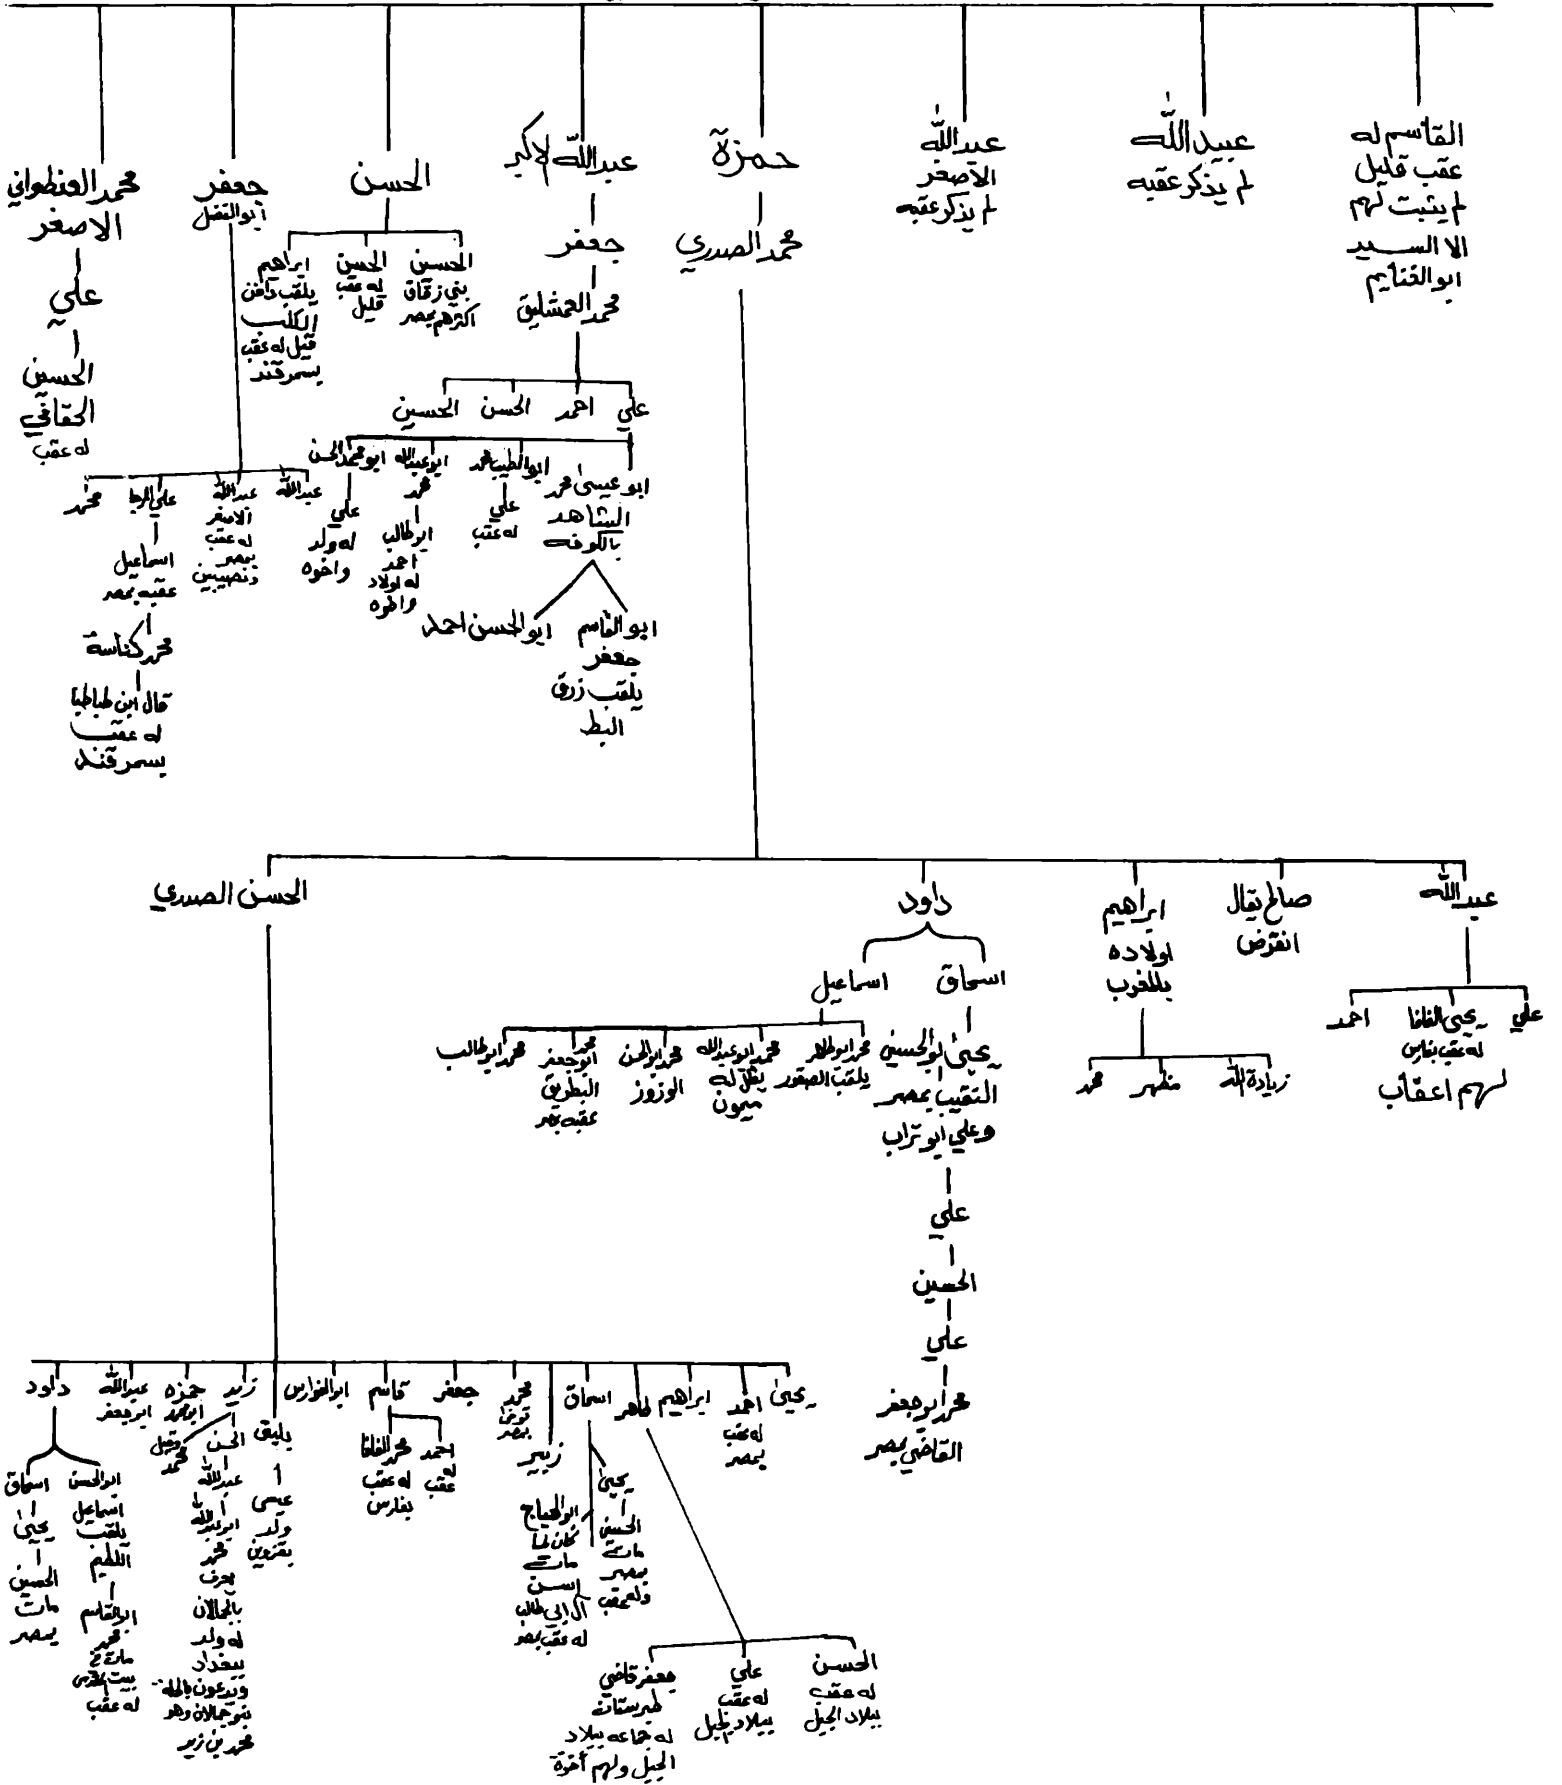 القاسم له
عقب قليل
لم يثبت لهم
الا السيد
ابو القنايم
عبيد الله
لم يذكر عقبه
عبد الله
الاصغر
لم يذكر عقبه
حمزة
محمد الصدري
عبد الله الاكبر
جعفر
محمد العمشليق
علي
احمد
الحسن
الحسين
ابو عيسى محمد
الشاهد
بالكوفه
ابو القاسم
جعفر
يلقب زرق
البط
ابو الحسن احمد
ابو الطيب محمد
علي
له عقب
ابو عبد الله
محمد
ابو طالب
احمد
له اولاد
واخوه
ابو محمد الحسن
علي
له ولد
واخوه
الحسن
الحسين
بني زقاق
اكثرهم بمصر
الحسن
له عقب
قليل
ابراهيم
يلقب دافن
الكلب
قيل له عقب
بسمرقند
جعفر
ابو الفضل
عبد الله
عبد الله
الاصغر
له عقب
بمصر
ونصيبين
علي
اسماعيل
عقبه بمصر
محمد كناسة
قال ابن طباطبا
له عقب
بسمرقند
محمد
محمد
الاصغر
علي
الحسين
له عقب
عبد الله
علي
يحيى الفافا
له عقب بفارس
احمد
لهم اعقاب
صالح يقال
انقرض
ابراهيم
اولاده
بالمغرب
زيادة الله
مطهر
محمد
داود
اسحاق
يحيى ابو الحسين
النقيب بمصر
وعلي ابو تراب
علي
الحسين
علي
محمد ابو جعفر
القاضي بمصر
اسماعيل
محمد ابو طاهر
يلقب الصقور
محمد ابو عبد الله
يقال له
ميمون
محمد ابو الحسن
الوزوز
محمد
ابو جعفر
البطريق
عقبه بمصر
محمد ابو طالب
الحسن الصدري
يحيى
احمد
له عقب
بمصر
ابراهيم
طاهر
الحسن
له عقب
ببلاد الجيل
علي
له عقب
ببلاد الجيل
جعفر قاضي
طبرستان
له جماعه ببلاد
الجيل ولهم أخوة
اسحاق
يحيى
الحسين
مات
بمصر
وله عقب
ابو الهياج
كان لما
مات
اسن
آل ابي طالب
له عقب بمصر
زبير
محمد
توفي
بمصر
جعفر
قاسم
احمد
له
عقب
محمد الفافا
له عقب
بفارس
ابو الفوارس
بليق
عيسى
ولد
بقزوين
زيد
الحسن
عبد الله
ابو عبد الله
محمد
يعرف
بالجمالان
له ولد
ببغداد
ويدعون بالحلة
بنو جمالان وهو
محمد بن زيد
وقيل
محمد
حمزه
ابو محمد
عبد الله
ابو جعفر
داود
ابو الحسن
اسماعيل
يلقب
اللطيم
ابو القاسم
محمد
مات في
بيت المقدس
له عقب
اسحاق
يحيى
الحسين
مات
بمصر